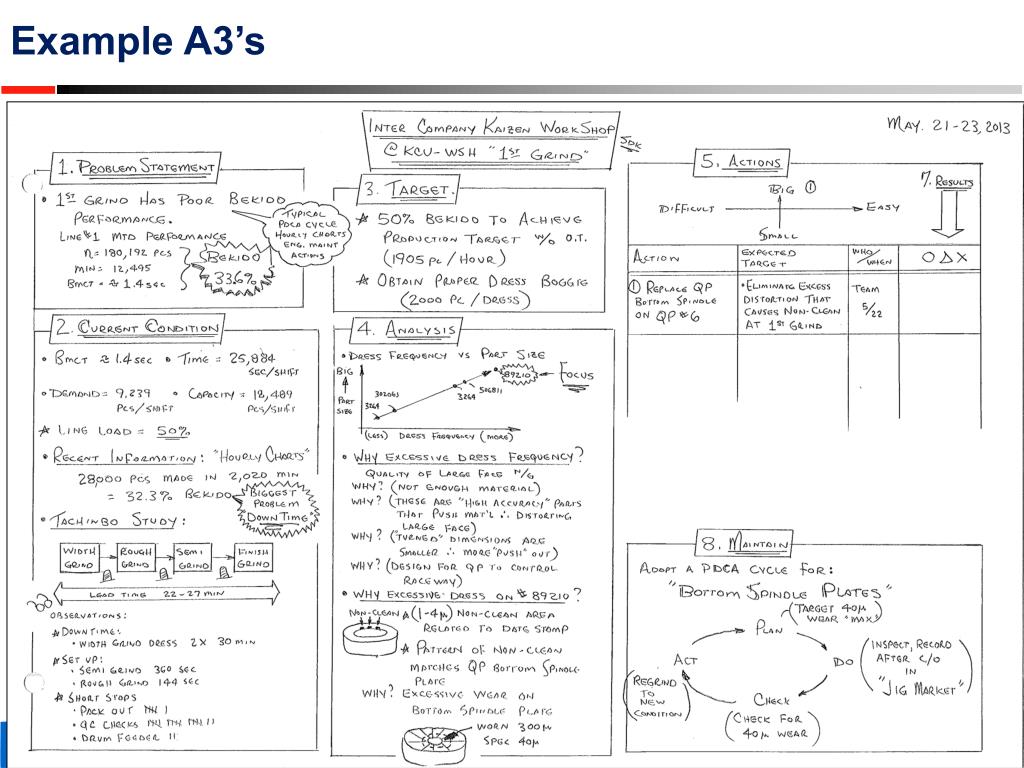 Example A3's
INTER COMPANY KAIZEN WORKSHOP
@ KCU-WSH "1ST GRIND"
SDK
MAY. 21-23, 2013
1. PROBLEM STATEMENT
• 1ST GRIND HAS POOR BEKIDO
PERFORMANCE.
LINE #1 MTD PERFORMANCE
n = 180,192 PCS
MIN = 12,495
BMCT = ≈ 1.4 SEC
BEKIDO
33.6%
TYPICAL
PDCA CYCLE
HOURLY CHARTS
ENG. MAINT
ACTIONS
2. CURRENT CONDITION
• BMCT ≈ 1.4 SEC • TIME = 25,884
SEC/SHIFT
• DEMAND = 9,239 • CAPACITY = 18,489
PCS/SHIFT PCS/SHIFT
LINE LOAD = 50%
• RECENT INFORMATION: "HOURLY CHARTS"
28,000 PCS MADE IN 2,020 MIN
= 32.3% BEKIDO
BIGGEST
PROBLEM
"DOWN TIME"
• TACHINBO STUDY:
WIDTH GRIND
ROUGH GRIND
SEMI GRIND
FINISH GRIND
LEAD TIME 22-27 MIN
OBSERVATIONS:
DOWNTIME:
• WIDTH GRIND DRESS 2X 30 MIN
SET UP:
• SEMI GRIND 360 SEC
• ROUGH GRIND 144 SEC
SHORT STOPS
• PACK OUT
• QC CHECKS
• DRUM FEEDER II
3. TARGET.
50% BEKIDO TO ACHIEVE
PRODUCTION TARGET W/O O.T.
(1905 PC/HOUR)
OBTAIN PROPER DRESS BOGGIE
(2000 PC/DRESS)
4. ANALYSIS
• DRESS FREQUENCY VS PART SIZE
BIG
PART
SIZE
3269
302063
3269
506811
89210
FOCUS
(LESS) DRESS FREQUENCY (MORE)
• WHY EXCESSIVE DRESS FREQUENCY?
QUALITY OF LARGE FACE N/G
WHY? (NOT ENOUGH MATERIAL)
WHY? (THESE ARE "HIGH ACCURACY" PARTS
THAT PUSH MAT'L ∴ DISTORTING
LARGE FACE)
WHY? ("TURNED" DIMENSIONS ARE
SMALLER ∴ MORE "PUSH" OUT)
WHY? (DESIGN FOR QP TO CONTROL
RACEWAY)
• WHY EXCESSIVE DRESS ON # 89210?
NON-CLEAN
(1-4µ) NON-CLEAN AREA
RELATED TO DATE STAMP
PATTERN OF NON-CLEAN
MATCHES QP BOTTOM SPINDLE
PLATE
WHY? EXCESSIVE WEAR ON
BOTTOM SPINDLE PLATE
WORN 300µ
SPEC 40µ
5. ACTIONS
BIG ①
DIFFICULT
EASY
SMALL
7. RESULTS
ACTION
EXPECTED
TARGET
WHO/
WHEN
O Δ X
① REPLACE QP
BOTTOM SPINDLE
ON QP #6
• ELIMINATE EXCESS
DISTORTION THAT
CAUSES NON-CLEAN
AT 1ST GRIND
TEAM
5/22
8. MAINTAIN
ADOPT A PDCA CYCLE FOR:
"BOTTOM SPINDLE PLATES"
(TARGET 40µ
WEAR "MAX")
PLAN
DO
(INSPECT, RECORD
AFTER C/O
IN
"JIG MARKET")
CHECK
(CHECK FOR
40µ WEAR)
ACT
(REGRIND
TO
NEW
CONDITION)